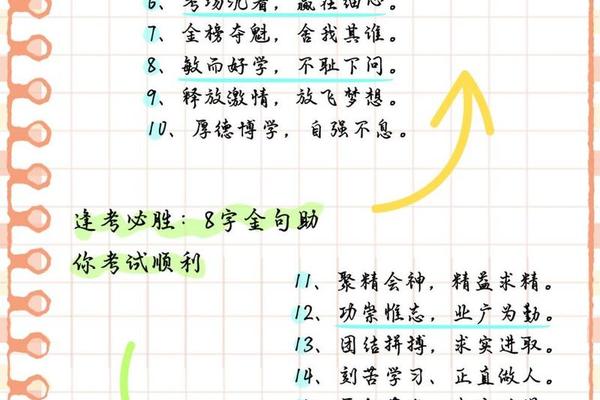 6、考场沉着，赢在细心。
7、金榜夺魁，舍我其谁。
8、敏而好学，不耻下问。
9、释放激情，放飞梦想。
10、厚德博学，自强不息。
逢考必胜：8字金句助
你考试顺利
11、聚精会神，精益求精。
12、功崇惟志，业广为勤。
13、团结拼搏，求实进取。
14、刻苦学习、正直做人。